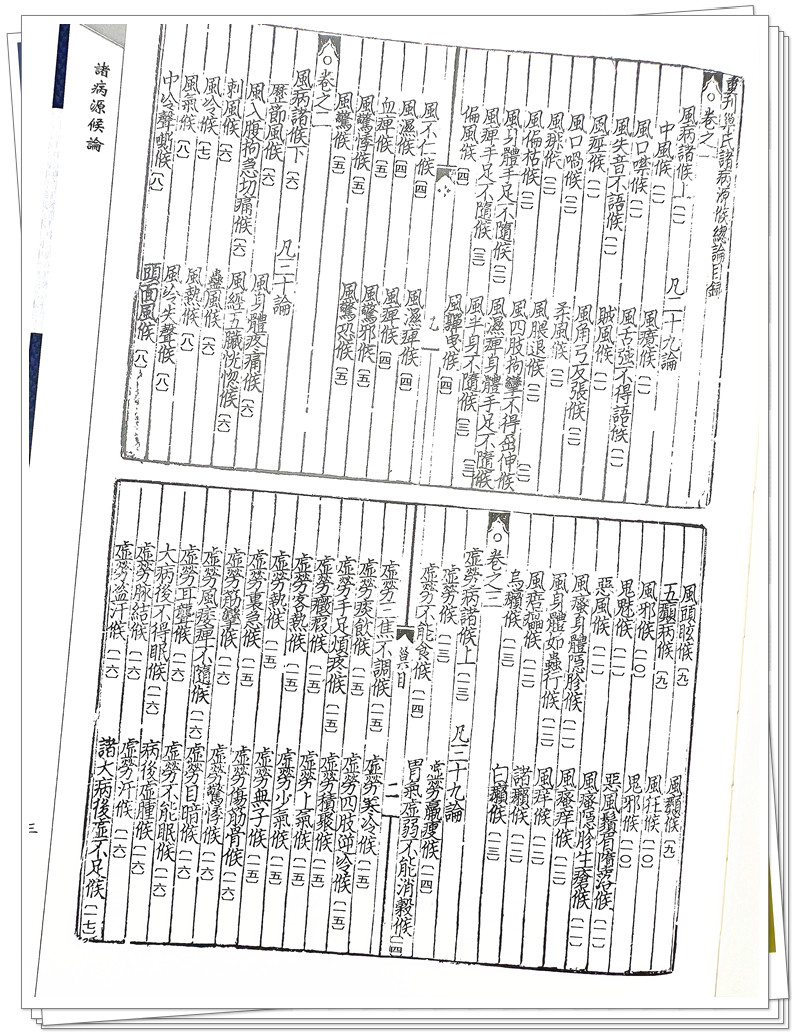 諸病源候論
重刊巢氏諸病源候總論目録
卷之一
風病諸候上〔一〕 凡二十九論
中風候〔一〕 風癔候〔一〕
風口噤候〔一〕 風舌強不得語候〔一〕
風失音不語候〔一〕 賊風候〔一〕
風痙候〔一〕 風角弓反張候〔二〕
風口喎候〔一〕 柔風候〔二〕
風痱候〔二〕 風腿退候〔二〕
風偏枯候〔二〕 風四肢拘攣不得屈伸候〔二〕
風身體手足不隨候〔二〕 風濕痺身體手足不隨候〔三〕
風痺手足不隨候〔三〕 風半身不隨候〔三〕
偏風候〔四〕 風嚲曳候〔四〕
一
風不仁候〔四〕 風濕痺候〔四〕
風濕候〔四〕 風痺候〔四〕
血痺候〔四〕 風驚邪候〔五〕
風驚悸候〔五〕 風驚恐候〔五〕
風驚候〔五〕
卷之二
風病諸候下〔六〕 凡三十論
歷節風候〔六〕 風身體疼痛候〔六〕
風入腹拘急切痛候〔六〕 風經五臟恍惚候〔六〕
刺風候〔六〕 蠱風候〔六〕
風冷候〔七〕 風熱候〔八〕
風氣候〔八〕 風冷失聲候〔八〕
中冷聲嘶候〔八〕 頭面風候〔八〕
風頭眩候〔九〕 風癲候〔九〕
五癲病候〔九〕 風狂候〔一〇〕
風邪候〔一〇〕 鬼邪候〔一〇〕
鬼魅候〔一一〕 惡風鬚眉墮落候〔一一〕
惡風候〔一一〕 風瘙隱胗生瘡候〔一一〕
風瘙身體隱胗候〔一一〕 風瘙痒候〔一二〕
風身體如蟲行候〔一二〕 風痒候〔一二〕
風痦㿔候〔一二〕 諸癩候〔一二〕
烏癩候〔一三〕 白癩候〔一三〕
卷之三
虛勞病諸候上〔一三〕 凡三十九論
虛勞候〔一三〕 虛勞羸瘦候〔一四〕
虛勞不能食候〔一四〕 胃氣虛弱不能消穀候〔一四〕
巢目 二
虛勞三焦不調候〔一五〕 虛勞寒冷候〔一五〕
虛勞痰飲候〔一五〕 虛勞四肢逆冷候〔一五〕
虛勞手足煩疼候〔一五〕 虛勞積聚候〔一五〕
虛勞癥瘕候〔一五〕 虛勞上氣候〔一五〕
虛勞客熱候〔一五〕 虛勞少氣候〔一五〕
虛勞熱候〔一五〕 虛勞無子候〔一五〕
虛勞裏急候〔一五〕 虛勞傷筋骨候〔一六〕
虛勞筋攣候〔一六〕 虛勞驚悸候〔一六〕
虛勞風痿痺不隨候〔一六〕 虛勞目暗候〔一六〕
虛勞耳聾候〔一六〕 虛勞不能眠候〔一六〕
大病後不得眠候〔一六〕 病後虛腫候〔一六〕
虛勞脉結候〔一六〕 虛勞汗候〔一六〕
虛勞盜汗候〔一六〕 諸大病後虛不足候〔一七〕
三